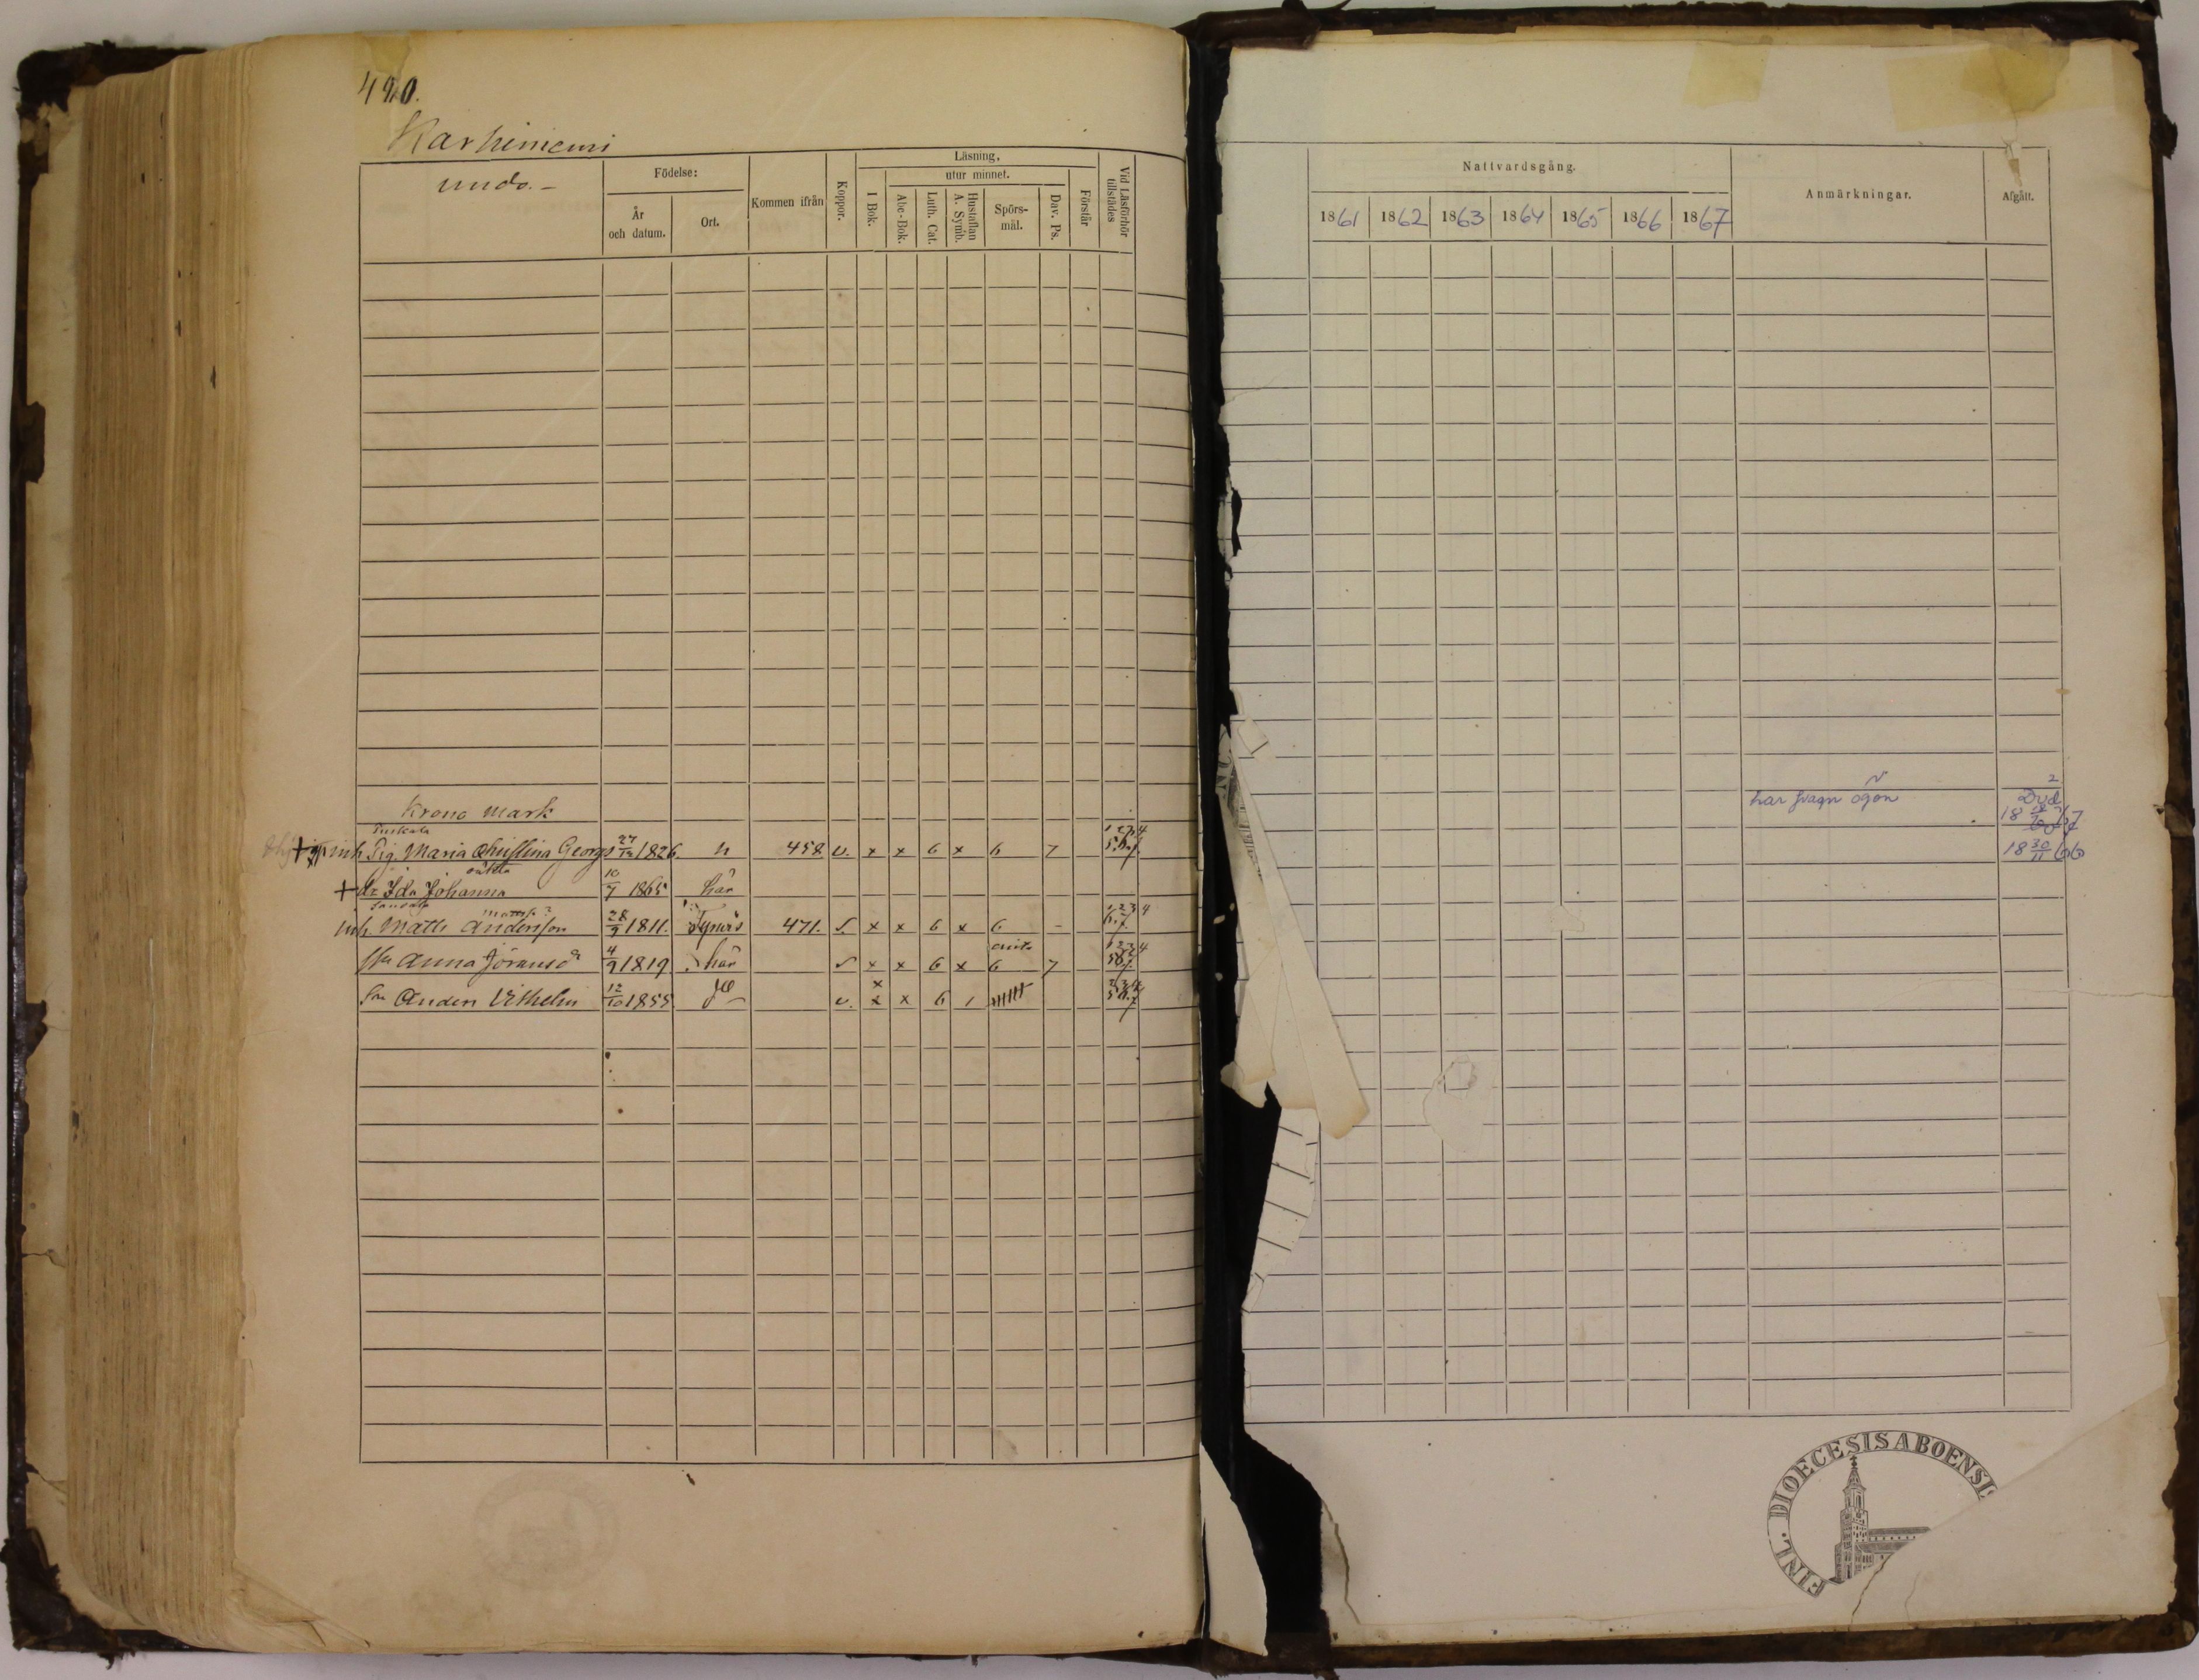 490.
Karhiniemi
unds. -
Födelse:
År
och datum.
Ort.
Kommen ifrån
Koppor.
Läsning,
utur minnet.
I Bok.
Abc-Bok.
Luth. Cat.
Hustaflan
A. Symb.
Spörs-
mål.
Dav. Ps.
Förstår
Vid Läsförhör
tillstädes
Nattvardsgång.
1861 1862 1863 1864 1865 1866 1867
Anmärkningar.
Afgått.
Krono mark
har svagn ögon
Död
inh Pig. Maria Christina Georgs 27/12 1826. h 458. v. x x 6 x 6 7
18 30/11 66
+ dr Ida Johanna 10/7 1865 här
inh. Matts Andersson 28/9 1811. 471. x x 6 x 6 -
1 2 3 4
6.7.
Anna 4/9 1819 här x x 6 x 6 7
Son Anders Vilhelm 12/10 1855. v. x x 6
FINL. DIOECESIS ABOENSI